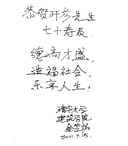 恭贺开彦先生
七十寿辰
德高才盛,
造福社会,
乐享人生!
清华大学
建筑学院
2011.7.15.